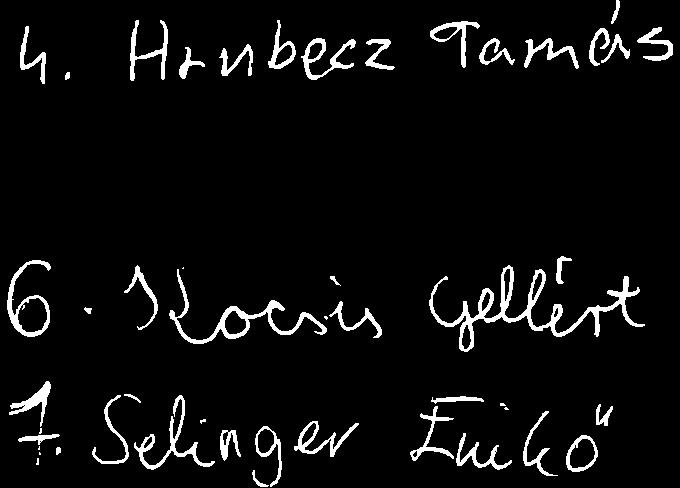 4. Hrubecz Tamás
6. Kocsis Gellért
7. Selinger Enikő